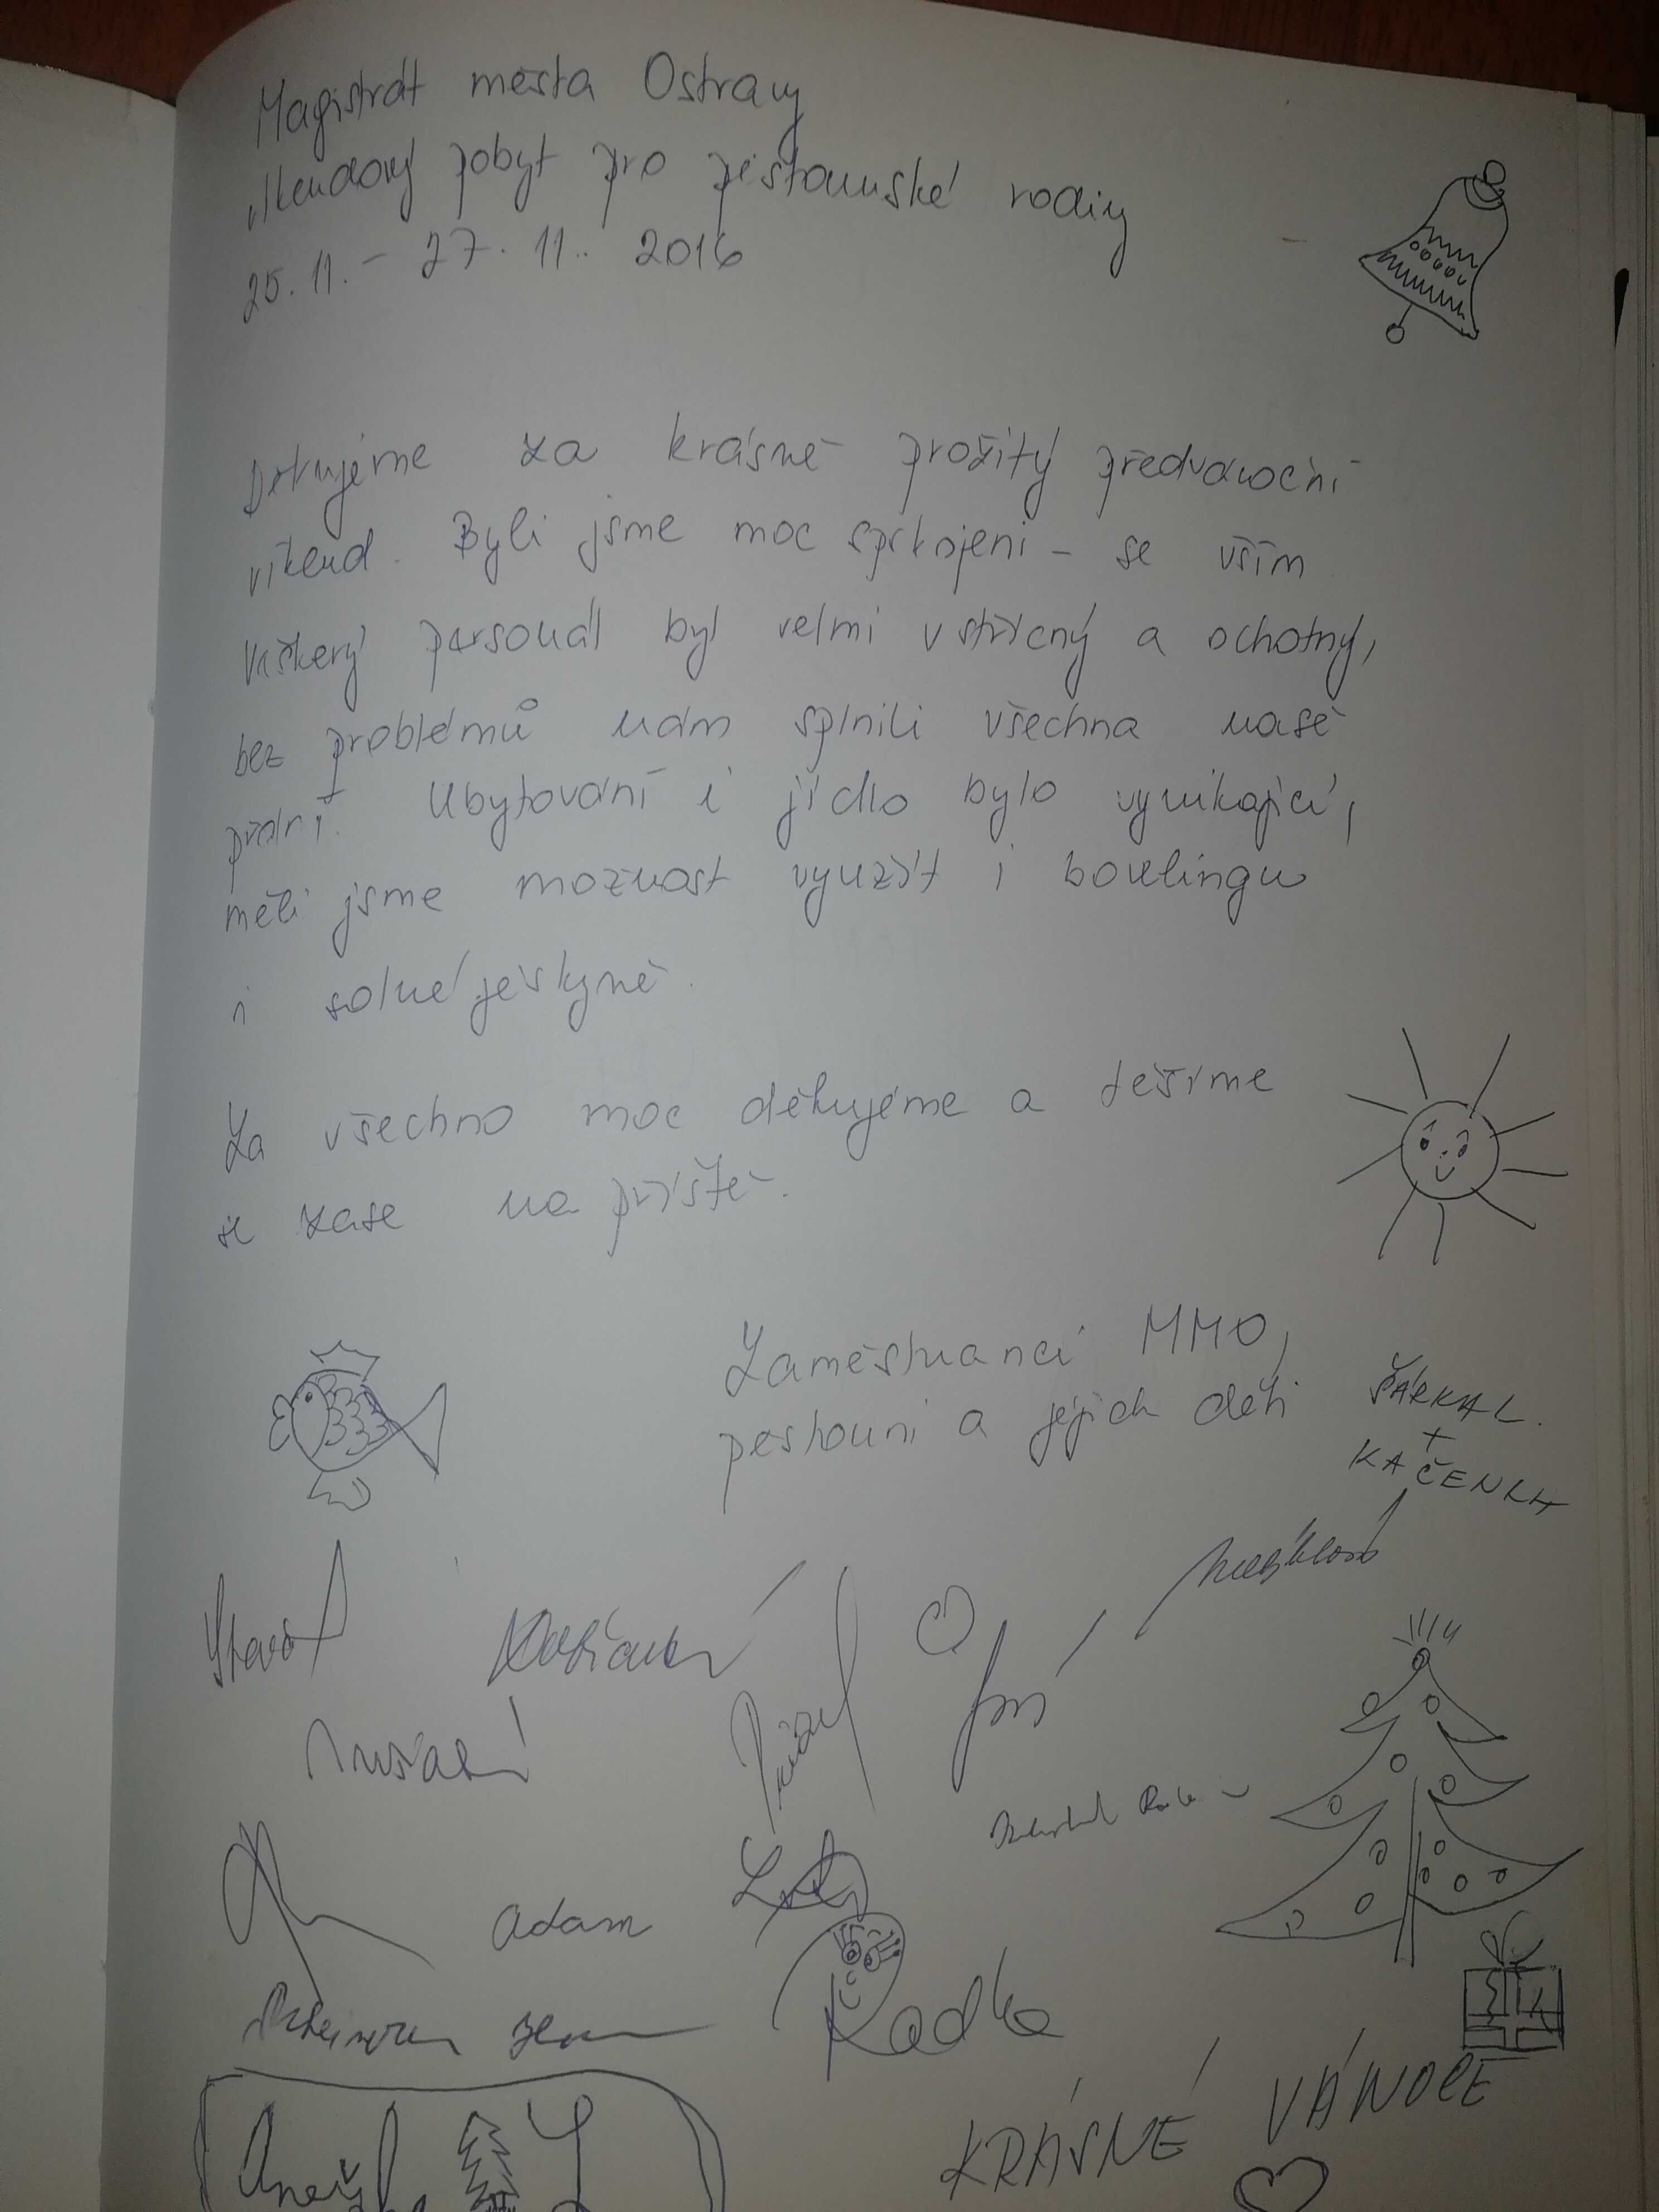 Magistrát města Ostravy
Víkendový pobyt pro pěstounské rodiny
25.11. - 27.11. 2016
Děkujeme za krásně prožitý předvánoční
víkend. Byli jsme moc spokojeni - se vším
Veškerý personál byl velmi vstřícný a ochotný,
bez problémů nám splnili všechna naše
přání. Ubytování i jídlo bylo vynikající,
měli jsme možnost využít i bowlingu
i solné jeskyně.
Za všechno moc děkujeme a těšíme
se zase na příště.
Zaměstnanci MMO,
pěstouni a jejich děti
ŠÁRKA L.
+
KAČENKA
Adam
Radka
KRÁSNÉ VÁNOCE